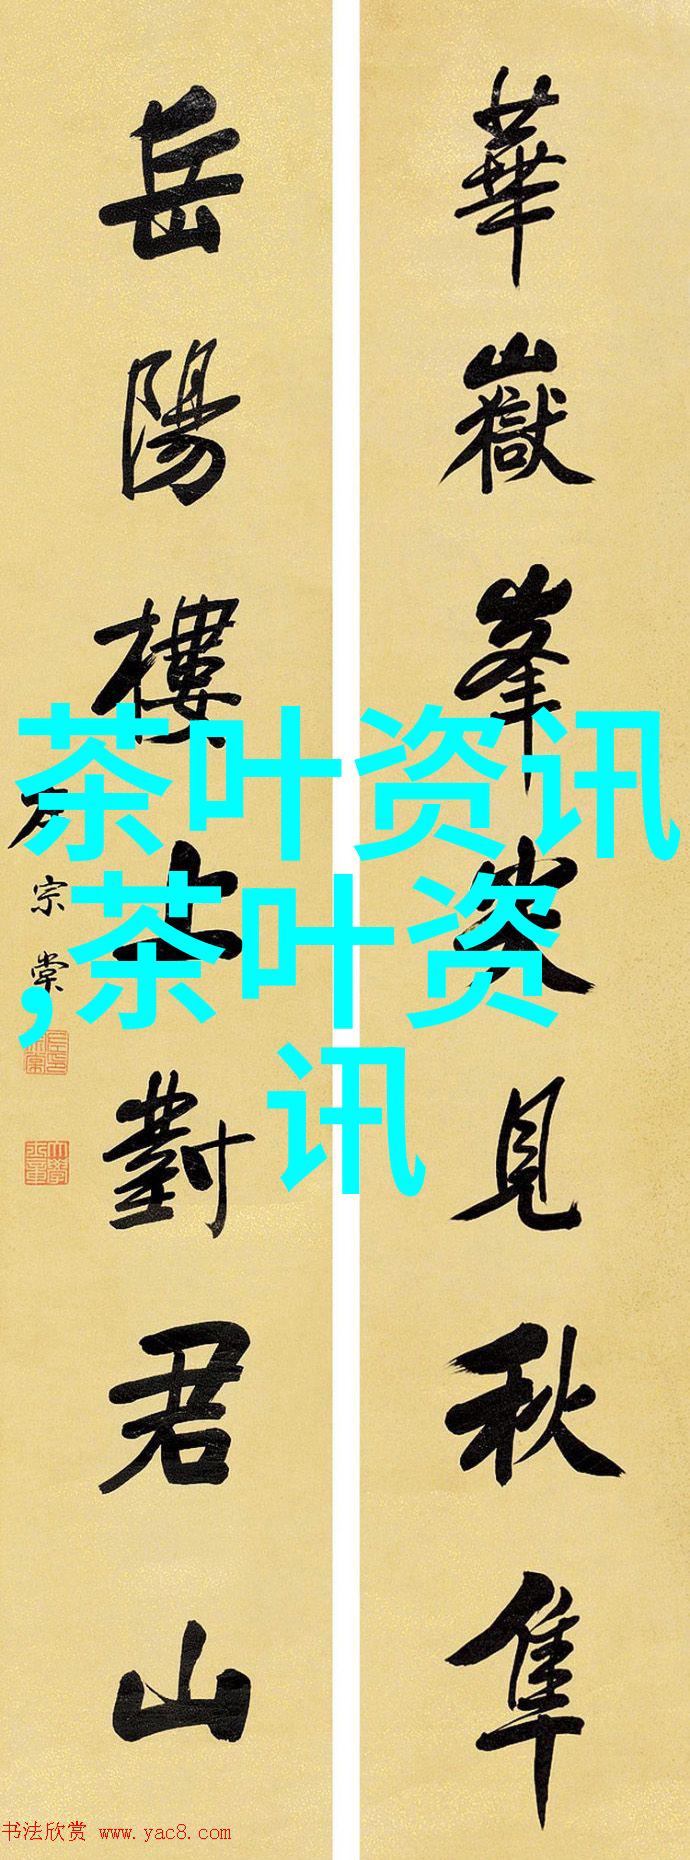 華嶽峯尖見秋隼
岳陽樓上對君山
左宗棠
茶叶资讯
,茶叶资
讯
书法欣赏 www.yac8.com